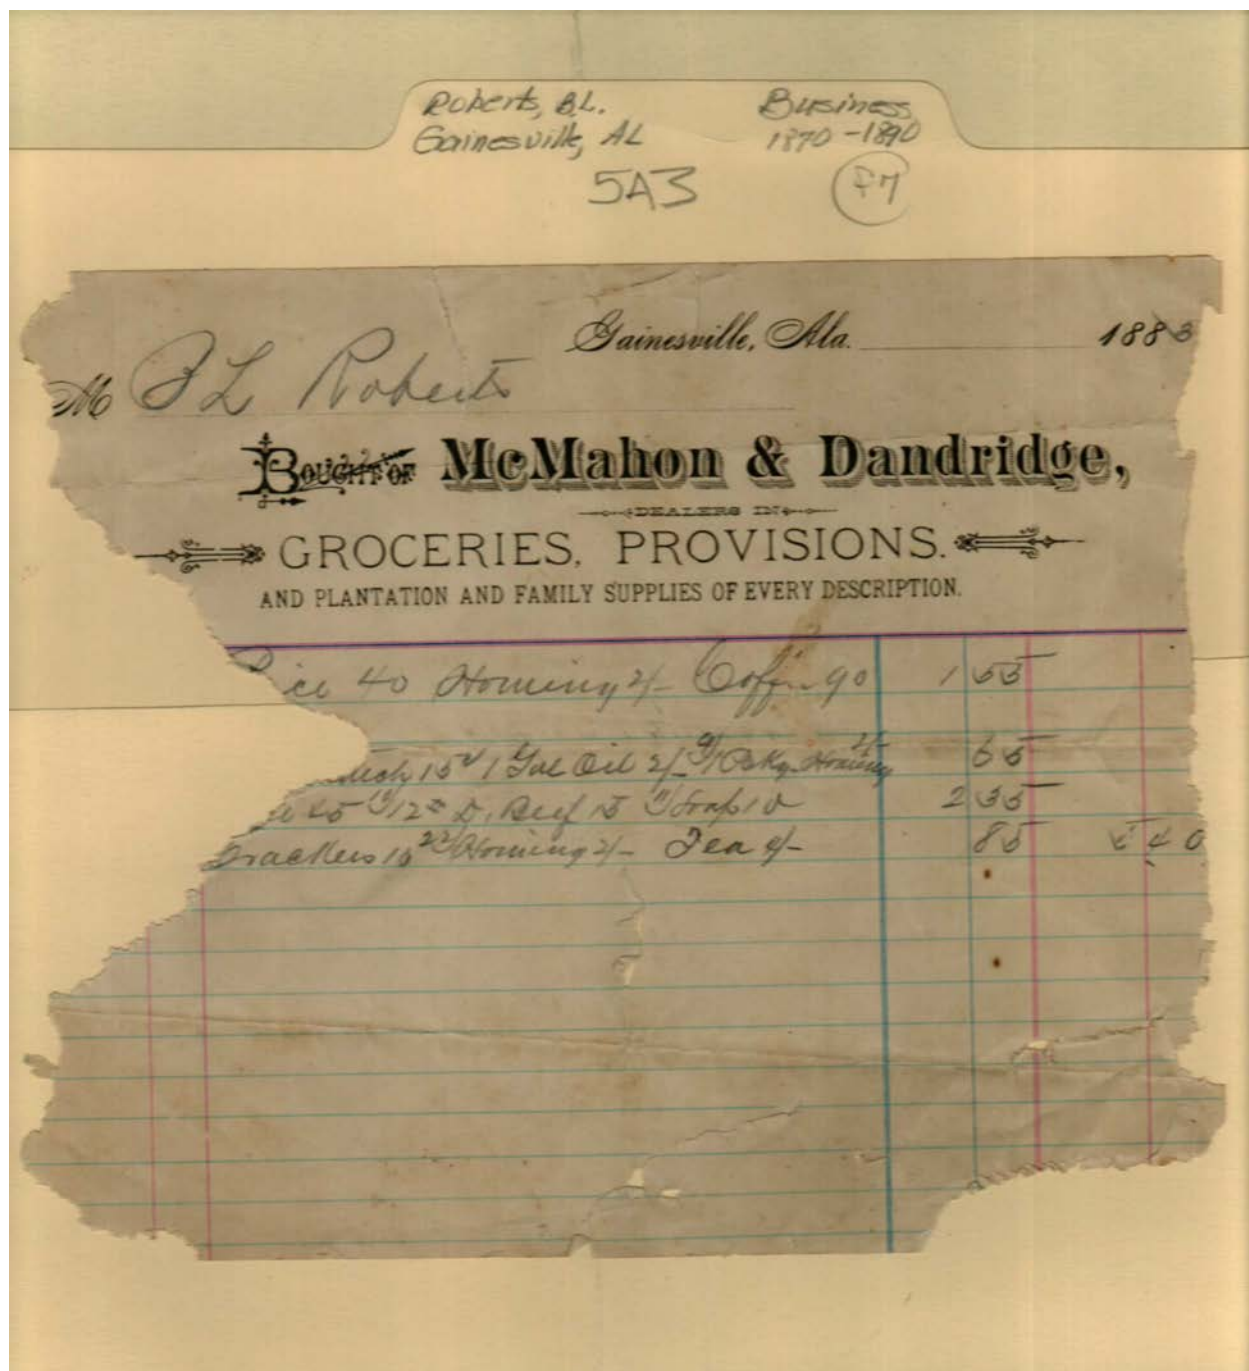 Roberts, B.L. Business
Gainesville, AL 1870-1890
5A3 F7
Gainesville, Ala. 1883
M B L Roberts
BOUGHT OF McMahon & Dandridge,
DEALERS IN
GROCERIES, PROVISIONS.
AND PLANTATION AND FAMILY SUPPLIES OF EVERY DESCRIPTION.
40 Hominy 2/- Coffee 90 1 55
15 1 Gal Oil 2/- Hominy 2/- 65
25 D. Beef 15 Soap 10 2 35
Crackers 10 Hominy 2/- Tea 4/- 85 5 40